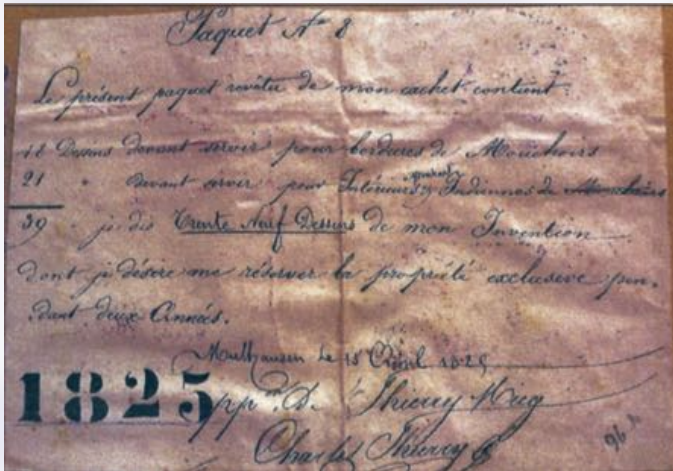 Paquet No 8
Le présent paquet revêtu de mon cachet contient
18 Dessins devant servir pour bordures de Mouchoirs
21 " devant servir pour Intérieurs Indiennes de Mouchoirs
39 " je dis Trente Neuf Dessins de mon Invention
dont je désire me réserver la propriété exclusive pen-
dant deux Années.
Mulhausen le 15 Avril 1825
1825
pp on D. Thierry Mieg
Charles Thierry
96